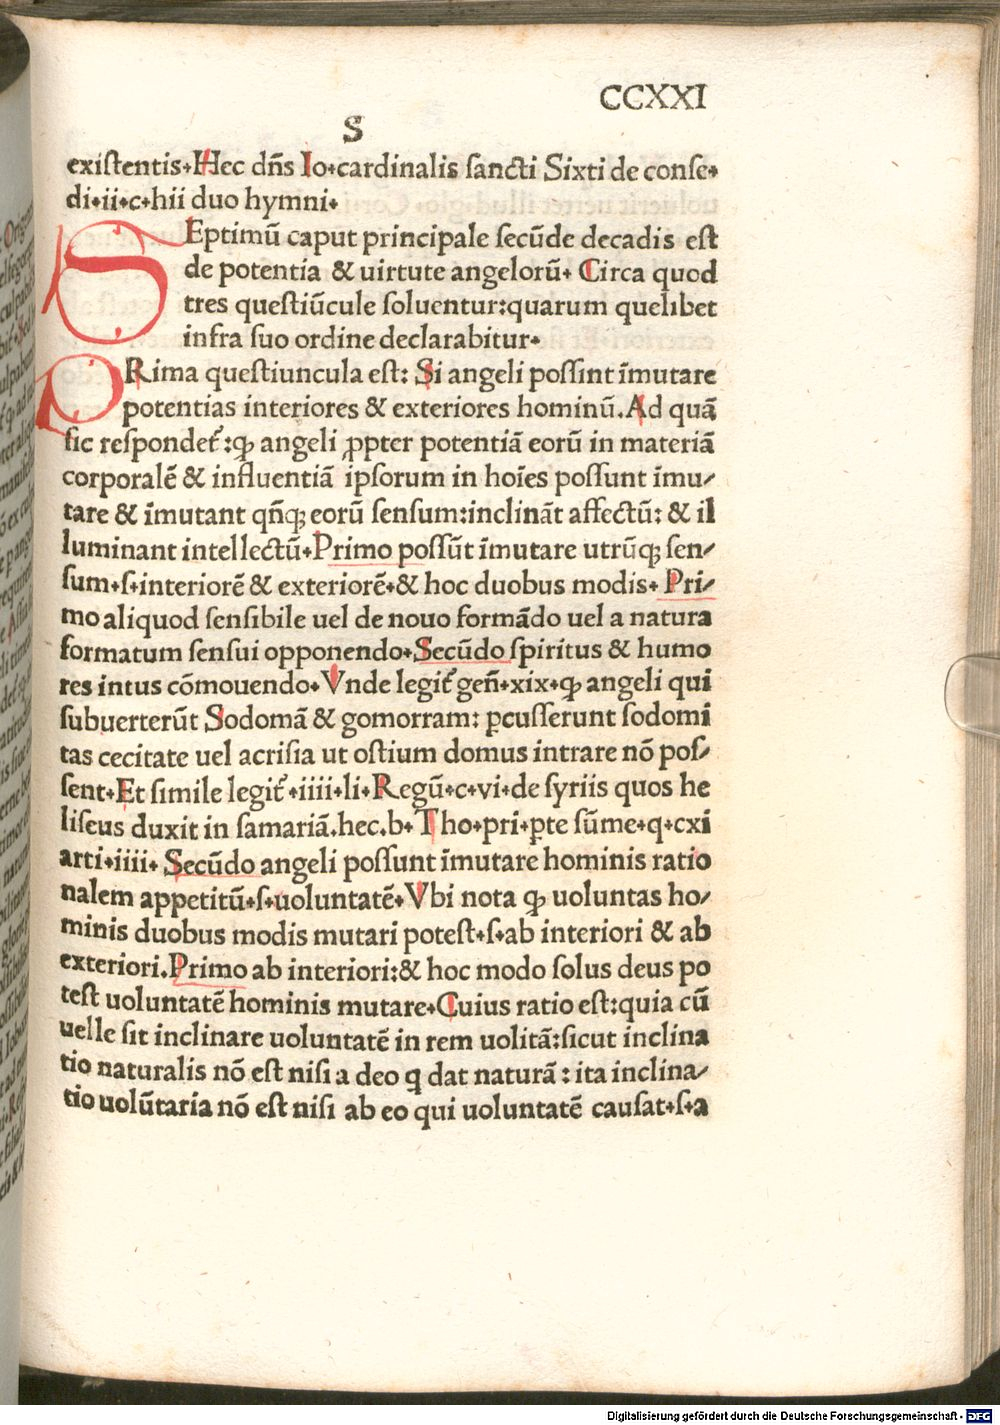 CCXXI
S
existentis.Hec dn̄s Io.cardinalis ſancti Sixti de conſe.
di.ii.c.hii duo hymni.
SEptimū caput principale ſecūde decadis eſt
de potentia & uirtute angelorū. Circa quod
tres queſtiūcule ſoluentur:quarum quelibet
infra ſuo ordine declarabitur.
PRima queſtiuncula eſt: Si angeli poſſint īmutare
potentias interiores & exteriores hominū. Ad quā
ſic reſpondet᷑:ꝙ angeli ꝓpter potentiā eorū in materiā
corporalē & influentiā ipſorum in hoīes poſſunt īmu⸗
tare & īmutant qn̄qꝫ eorū ſenſum:inclināt affectū: & il
luminant intellectū.Primo poſſūt īmutare utrūqꝫ ſen⸗
ſum.ſ.interiorē & exteriorē.& hoc duobus modis. Pri⸗
mo aliquod ſenſibile uel de nouo formādo uel a natura
formatum ſenſui opponendo.Secūdo ſpiritus & humo
res intus cōmouendo. Vnde legit᷑ gen̄.xix.ꝙ angeli qui
ſubuerterūt Sodomā & gomorram: ꝑcuſſerunt ſodomi
tas cecitate uel acriſia ut oſtium domus intrare nō poſ⸗
ſent.Et ſimile legit᷑ .iiii.li.Regū.c.vi.de ſyriis quos he
liſeus duxit in ſamariā.hec.b. Tho.pri.ꝑte ſūme.q.cxi
arti.iiii. Secūdo angeli poſſunt īmutare hominis ratio
nalem appetitū.ſ.uoluntatē. Vbi nota ꝙ uoluntas ho⸗
minis duobus modis mutari poteſt.ſ.ab interiori & ab
exteriori.Primo ab interiori:& hoc modo ſolus deus po
teſt uoluntatē hominis mutare.Cuius ratio eſt:quia cū
uelle ſit inclinare uoluntatē in rem uolitā:ſicut inclina
tio naturalis nō eſt niſi a deo q dat naturā : ita inclina⸗
tio uolūtaria nō eſt niſi ab eo qui uoluntatē cauſat.ſ.a
Digitalisierung gefördert durch die Deutsche Forschungsgemeinschaft - DFG